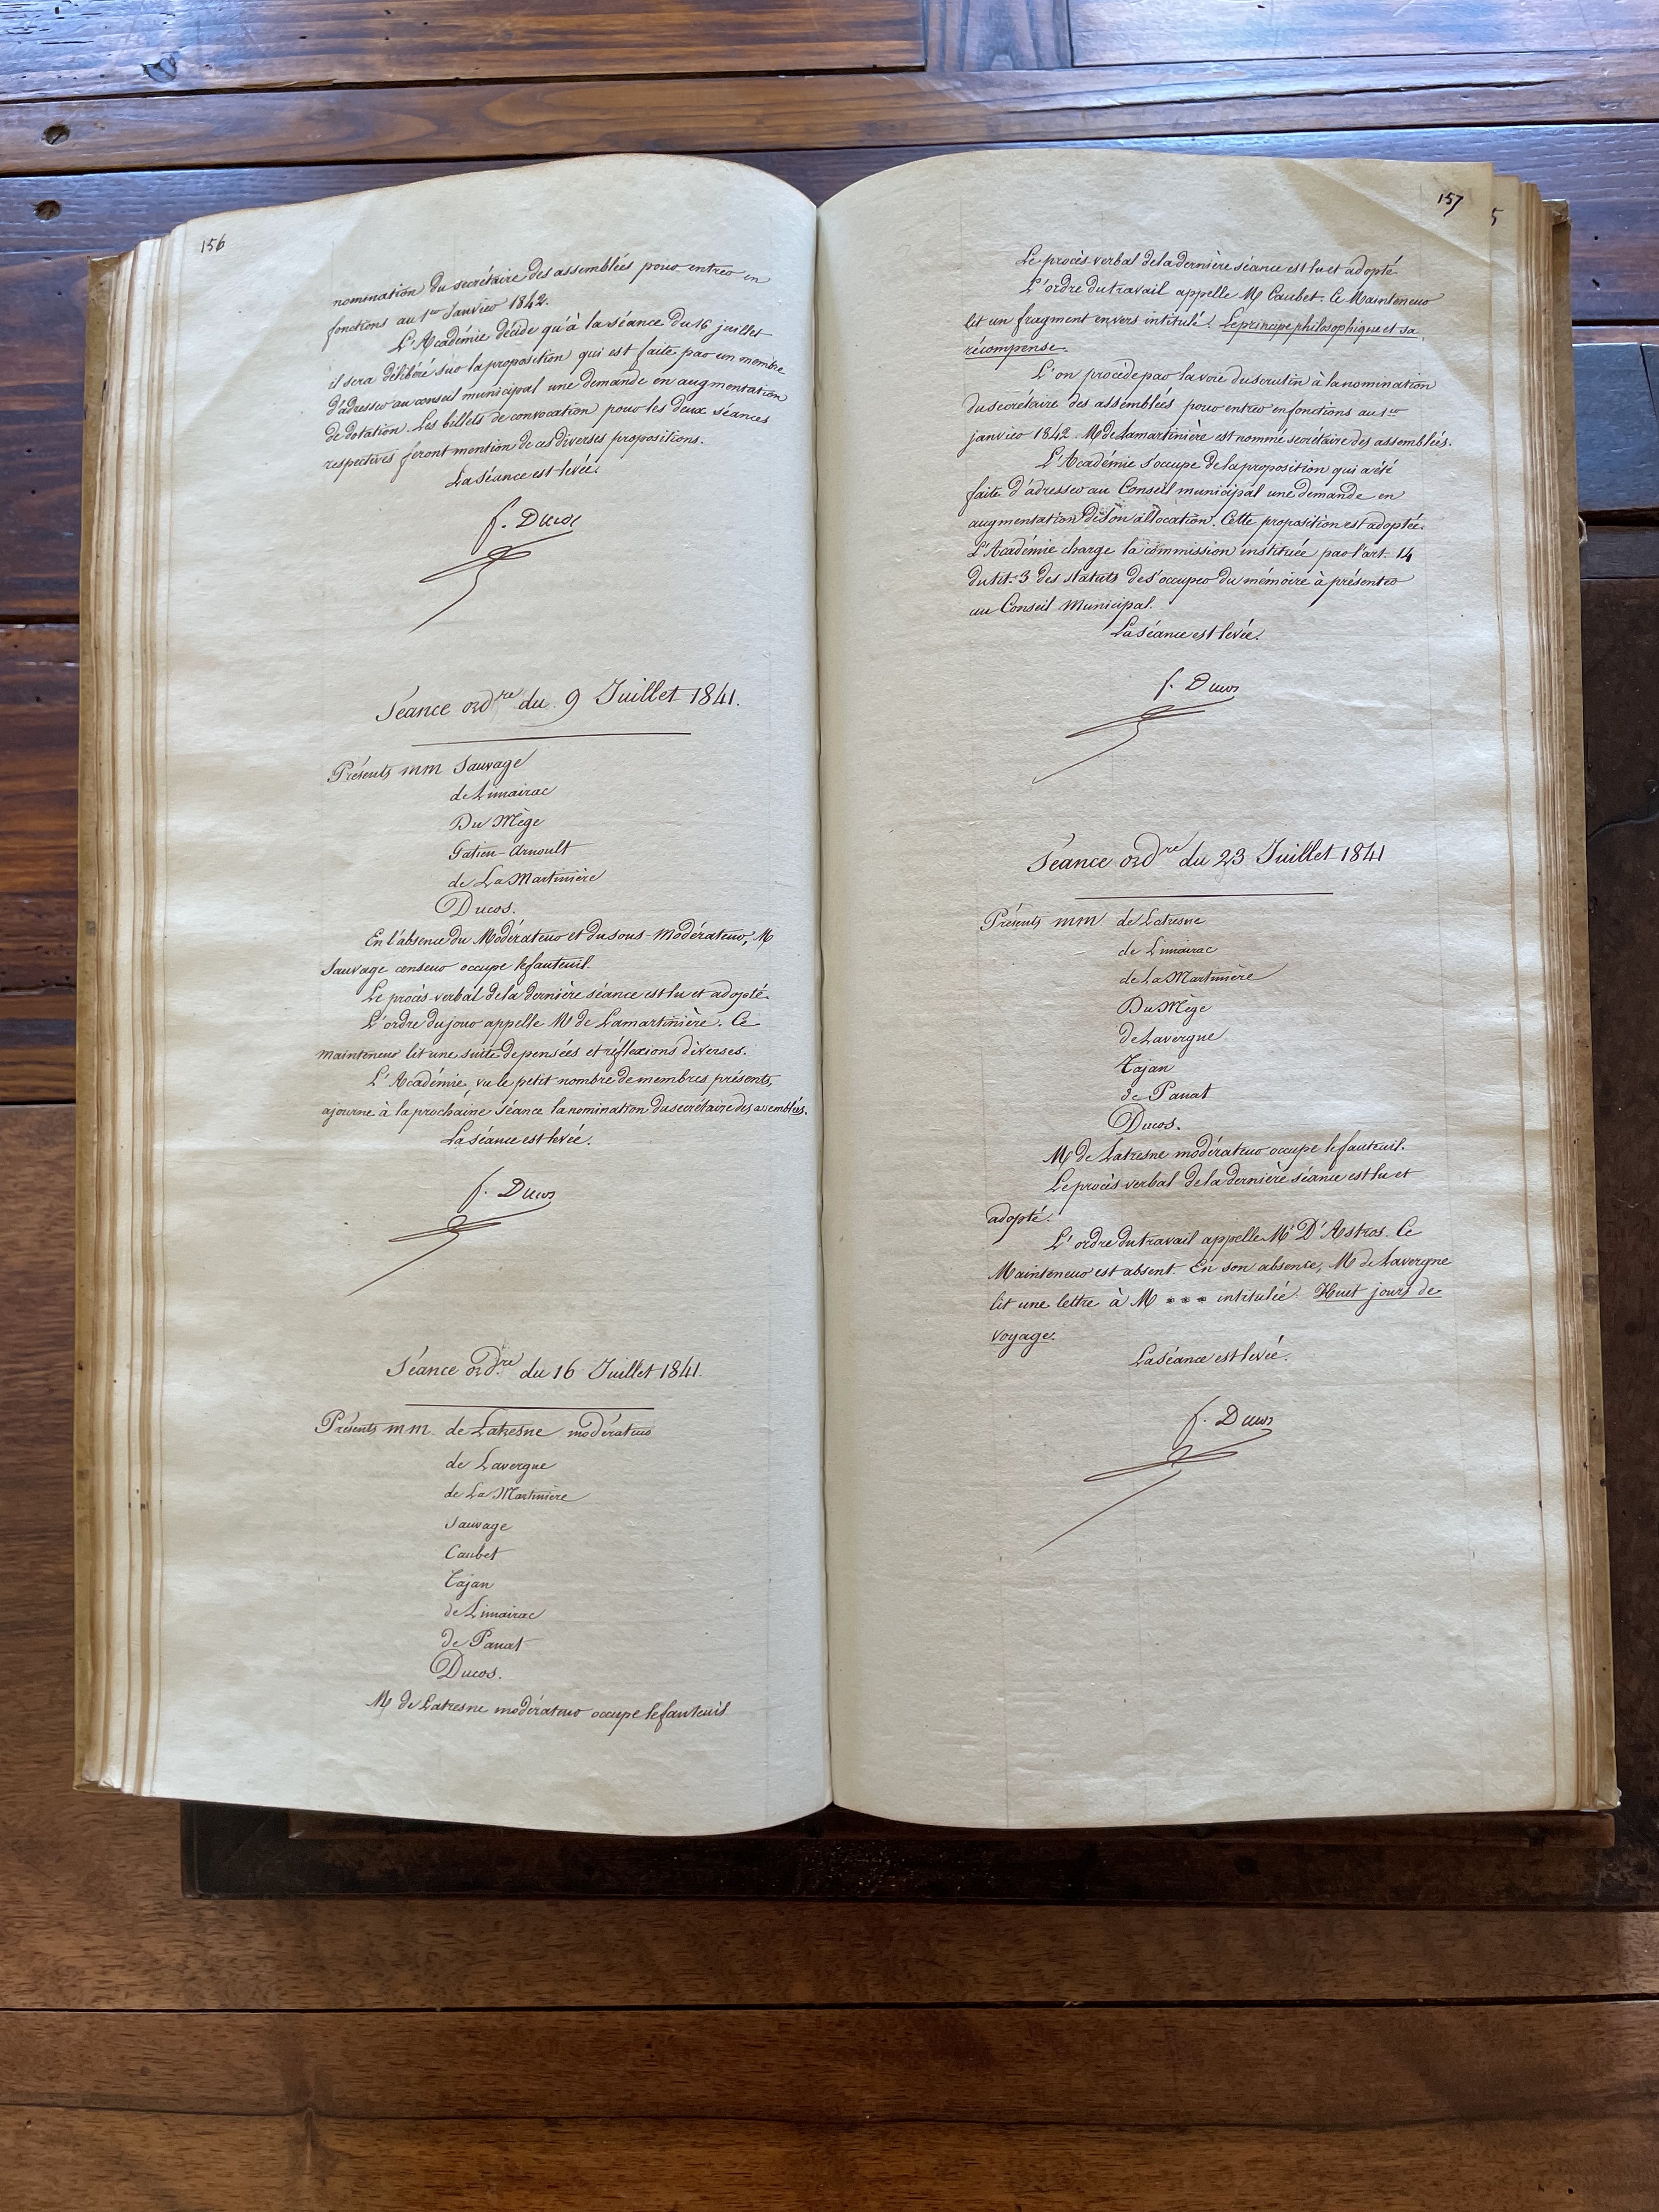 156
nomination du secrétaire des assemblées pour entrer en
fonctions au 1er Janvier 1842.
L'Académie décide qu'à la séance du 16 juillet
il sera délibéré sur la proposition qui est faite par un membre
d'adresser au conseil municipal une demande en augmentation
de dotation. Les billets de convocation pour les deux séances
respectives feront mention de ces diverses propositions.
La séance est levée.
f. Ducos
Séance ordre du 9 Juillet 1841.
Présents mm Sauvage
de Limairac
Du Mège
Gatien-Arnoult
de La Martinière
Ducos.
En l'absence du Modérateur et du sous-modérateur, M
Sauvage censeur occupe le fauteuil.
Le procès-verbal de la dernière séance est lu et adopté.
L'ordre du jour appelle Mr de Lamartinière. Ce
mainteneur lit une suite de pensées et réflexions diverses.
L'Académie, vu le petit nombre de membres présents,
ajourne à la prochaine séance la nomination du secrétaire des assemblées.
La séance est levée.
f. Ducos
Séance ordre du 16 Juillet 1841.
Présents mm. de Latresne modérateur
de Lavergne
de La Martinière
Sauvage
Caubet
Tajan
de Limairac
de Panat
Ducos.
M de Latresne modérateur occupe le fauteuil
157
5
Le procès verbal de la dernière séance est lu et adopté
L'ordre du travail appelle M Caubet. Ce Mainteneur
lit un fragment en vers intitulé: Le principe philosophique et sa
récompense.
L'on procède par la voie du scrutin à la nomination
du secrétaire des assemblées pour entrer en fonctions au 1er
janvier 1842. M de Lamartinière est nommé secrétaire des assemblées.
L'Académie s'occupe de la proposition qui a été
faite d'adresser au Conseil municipal une demande en
augmentation de son allocation. Cette proposition est adoptée.
L'Académie charge la commission instituée par l'art. 14
du tit. 3 des statuts de s'occuper du mémoire à présenter
au Conseil Municipal.
La séance est levée.
f. Ducos
Séance ordre du 23 Juillet 1841
Présents mm. de Latresne
de Limairac
de La Martinière
Du Mège
de Lavergne
Tajan
de Panat
Ducos.
M de Latresne modérateur occupe le fauteuil.
Le procès verbal de la dernière séance est lu et
adopté.
L'ordre du travail appelle Mr D'Astros. Ce
Mainteneur est absent. En son absence, M de Lavergne
lit une lettre à M *** intitulée: Huit jours de
voyage.
La séance est levée.
f. Ducos